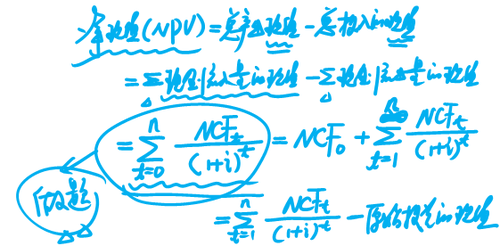 净现值(NPV)=总产出现值-总投入的现值
=Σ现金流入量的现值-Σ现金流出量的现值
=\sum_{t=0}^{n} \frac{NCF_t}{(1+i)^t} = NCF_0 + \sum_{t=1}^{n} \frac{NCF_t}{(1+i)^t}
做题
=\sum_{t=1}^{n} \frac{NCF_t}{(1+i)^t} - 原始投资的现值